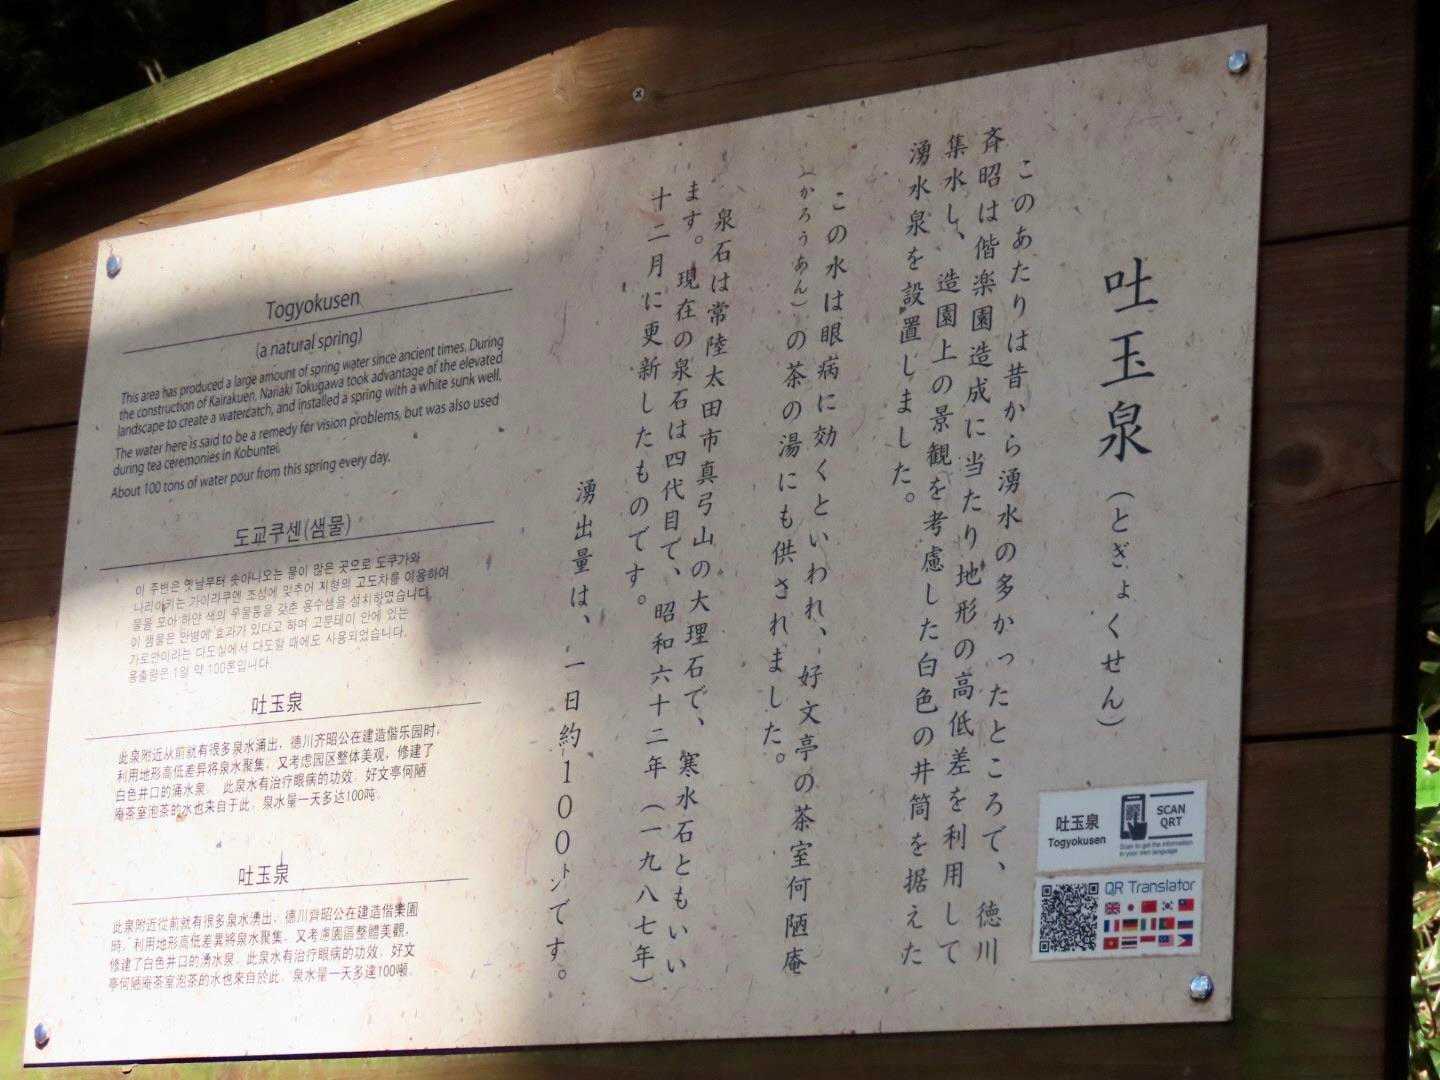 吐玉泉（とぎょくせん）
このあたりは昔から湧水の多かったところで、徳川
斉昭は偕楽園造成に当たり地形の高低差を利用して
集水し、造園上の景観を考慮した白色の井筒を据えた
湧水泉を設置しました。
この水は眼病に効くといわれ、好文亭の茶室何陋庵
（かろうあん）の茶の湯にも供されました。
泉石は常陸太田市真弓山の大理石で、寒水石ともいい
ます。現在の泉石は四代目で、昭和六十二年（一九八七年）
十二月に更新したものです。
湧出量は、一日約100トンです。
Togyokusen
(a natural spring)
This area has produced a large amount of spring water since ancient times. During
the construction of Kairakuen, Nariaki Tokugawa took advantage of the elevated
landscape to create a watercatch, and installed a spring with a white sunk well.
The water here is said to be a remedy for vision problems, but was also used
during tea ceremonies in Kobuntei.
About 100 tons of water pour from this spring every day.
도교쿠센(샘물)
이 주변은 옛날부터 솟아나오는 물이 많은 곳으로 도쿠가와
나리아키는 가이라쿠엔 조성에 맞추어 지형의 고도차를 이용하여
물을 모아 하얀 색의 우물틀을 갖춘 용수샘을 설치하였습니다.
이 샘물은 안병에 효과가 있다고 하며 고분테이 안에 있는
가로안이라는 다도실에서 다도할 때에도 사용되었습니다.
용출량은 1일 약 100톤입니다.
吐玉泉
此泉附近从前就有很多泉水涌出，德川齐昭公在建造偕乐园时，
利用地形高低差异将泉水聚集，又考虑园区整体美观，修建了
白色井口的涌水泉。 此泉水有治疗眼病的功效。好文亭何陋
庵茶室泡茶的水也来自于此。泉水量一天多达100吨。
吐玉泉
此泉附近從前就有很多泉水湧出，德川齊昭公在建造偕樂園
時，利用地形高低差異將泉水聚集，又考慮園區整體美觀，
修建了白色井口的湧水泉。此泉水有治療眼病的功效。好文
亭何陋庵茶室泡茶的水也來自於此。泉水量一天多達100噸。
吐玉泉
Togyokusen
SCAN
QRT
Scan to get the information
in your own language
QR Translator